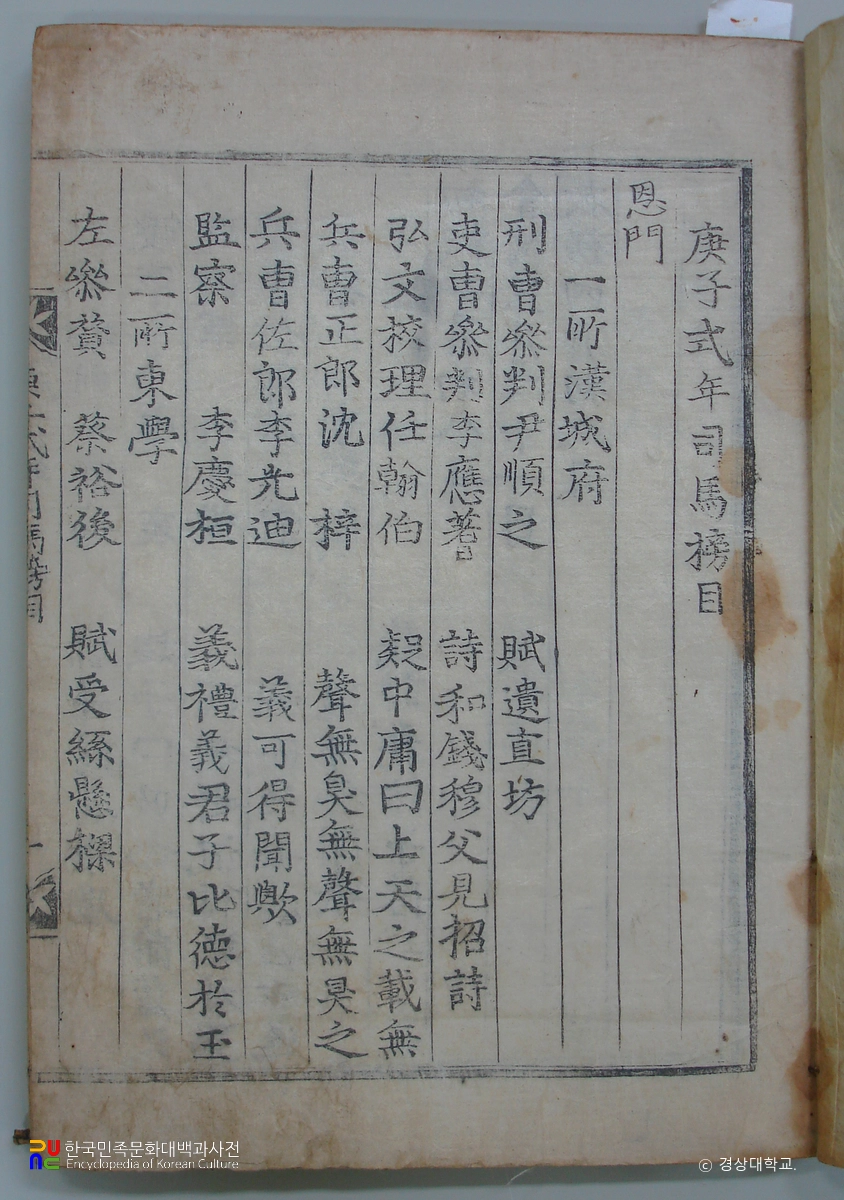 庚子式年司馬榜目
恩門
一所漢城府
刑曹叅判尹順之 賦遺直坊
吏曹叅判李應蓍 詩和錢穆父見招詩
弘文校理任翰伯 疑中庸曰上天之載無
兵曹正郎沈 梓 聲無臭無聲無臭之
兵曹佐郎李光迪 義可得聞歟
監察 李慶桓 義禮義君子比德於玉
二所東學
左叅贊 蔡裕後 賦受絲懸樑
庚子式年司馬榜目
한국민족문화대백과사전
Encyclopedia of Korean Culture
© 경상대학교.